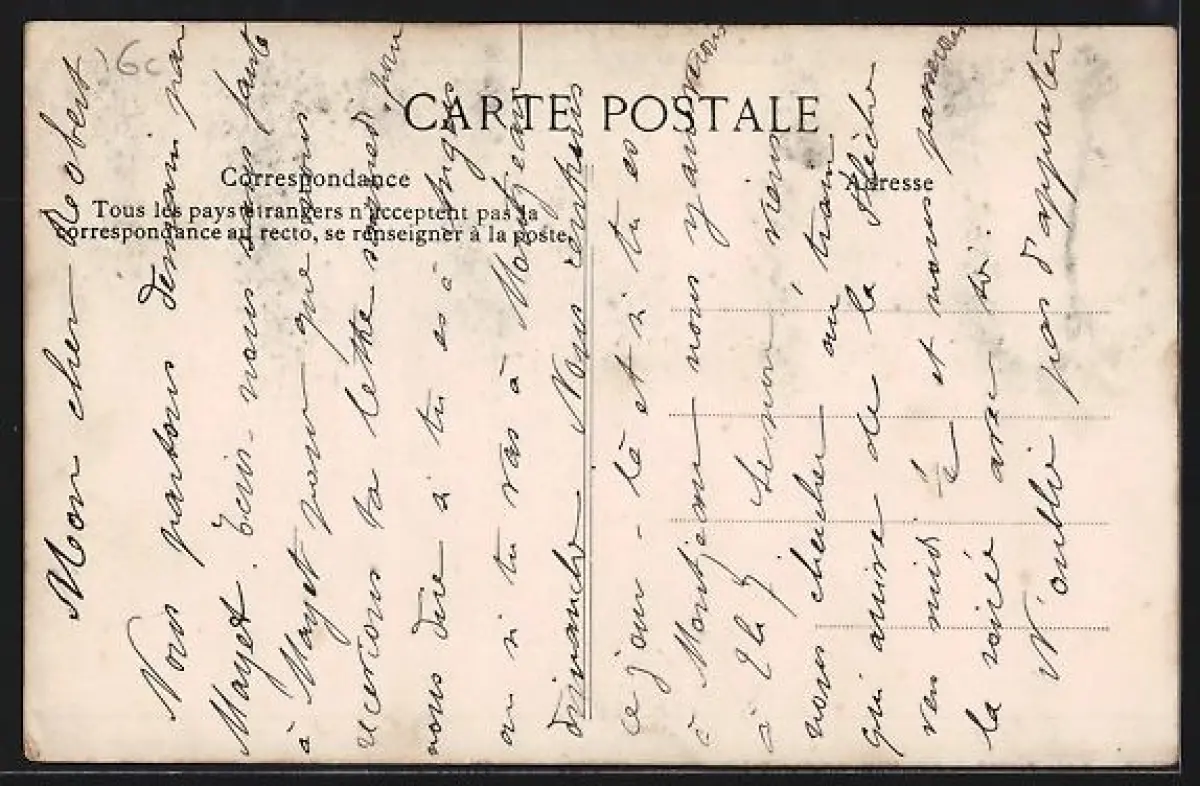 16c
CARTE POSTALE
Correspondance
Tous les pays étrangers n'acceptent pas la
correspondance au recto, se renseigner à la poste.
Adresse
Mon cher Robert
Nous partons demain par
Mayet. Ecris-nous sans faute
à Mayet pour que nous
recevions ta lettre samedi pour
nous dire si tu es à Angers
ou si tu vas à Montjean
dimanche. Nous rentrons
ce jour-là et si tu es
à Montjean nous y arriverons
à 2h 7, sinon, viens
nous chercher au train
qui arrive de la Flèche
vers midi ½ et nous passerons
la soirée avec toi.
N'oublie pas d'apporter